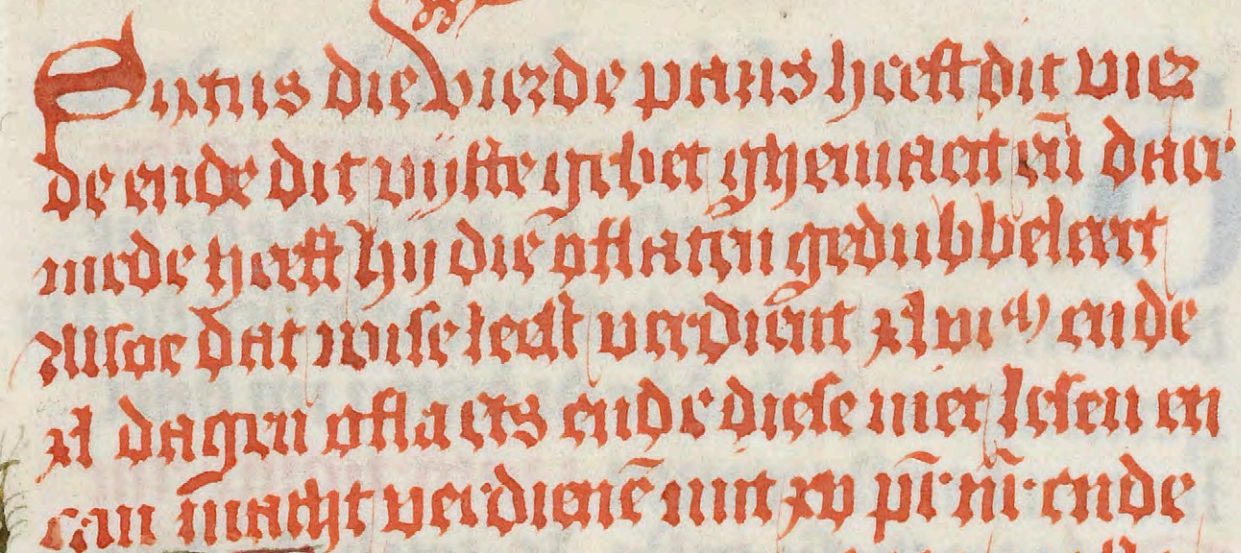 Sixtus die vierde paeus heeft dit vier
de ende dit vijfte gebet ghemaect en̄ daer
mede heeft hij die oflaten gedubbeleert
Alsoe dat wise leest verdient xlvi ᵐ ende
xl dagen oflaets ende diese niet lesen en
can macht verdienē mit xv pr̄ nr̄ ende